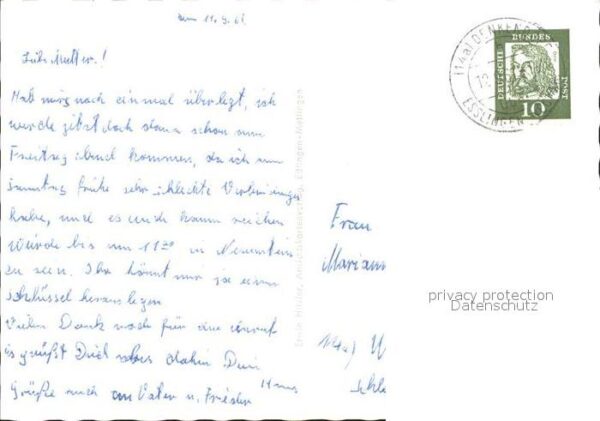 am 11.9.61
Liebe Mutter!
Hab mirs noch einmal überlegt, ich
werde jetzt doch dann schon am
Freitag abend kommen, da ich am
Samstag frühe sehr schlechte Verbindungen
habe, und es auch kaum reichen
würde bis um 11 in Neuenstein
zu sein. Ihr könnt mir ja einen
Schlüssel herauslegen
Vielen Dank noch für
es grüßt Dich bis dahin Dein
Hans
Grüße auch an Vater u. Frieder
Frau
Mariann
14a)
Schl
(14a) DENKENDORF
ESSLINGEN
DEUTSCHE BUNDESPOST
10
privacy protection
Datenschutz